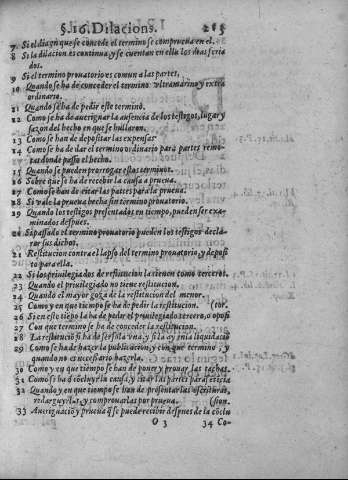 §.16. Dilacions. 215
7 Si el dia en que se concede el termino se comprueua en el.
8 Si la dilacion es continua, y se cuentan en ella los dias feria
dos.
9 Si el termino prouatorio es comun a las partes,
10 Quando se ha de conceder el termino vltramarino y extra
ordinario.
11 Quando se ha de pedir este termino.
12 Como se ha de aueriguar la ausencia de los testigos, lugar y
sazon del hecho en que se hallaron.
13 Como se han de depositar las expensas.
14 Como se ha de dar el termino ordinario para partes remo-
tas donde passo el hecho.
15 Quando se pueden prorrogar estos terminos.
16 Sobre que se ha de recebir la causa a prueua.
17 Como se han de citar las partes para la prueua.
18 Si vale la prueua hecha sin termino prouatorio.
19 Quando los testigos presentados en tiempo, pueden ser exa-
minados despues.
20 Si passado el termino prouatorio pueden los testigos decla-
rar sus dichos.
21 Restitucion contra el lapso del termino prouatorio, y deposi
to para ella.
22 Si los priuilegiados de restitucion la tienen como terceros.
23 Quando el priuilegiado no tiene restitucion.
24 Quando el mayor goza de la restitucion del menor.
25 Como y en que tiempo se ha de pedir la restitucion. (tor.
26 Si en este tiempo la ha de pedir el priuilegiado tercero, o oposi
27 Con que termino se ha de conceder la restitucion.
28 La restitucion ha de ser sola vna, y si la ay en la liquidacio
29 Como se ha de hazer la publicacion, y con que termino, y
quando no es necessario hazerla.
30 Como y en que tiempo se han de poner y prouar las tachas.
31 Como se ha de cõcluyr la causa, y citar las partes para
32 Quando y en que tiempo se han de presentar las escrituras,
redarguyrlas, y comprouarlas por prueua. (sion.
33 Aueriguaciõ y prueua q̃ se puede recibir despues de la cõclu
O 3 34 Co-